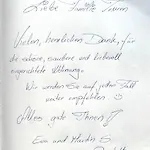 Liebe Familie
Vielen, herzlichen Dank, für
die schöne, saubere und liebevoll
eingerichtete Wohnung.
Wir werden Sie auf jeden Fall
weiter empfehlen
Alles gute Ihnen
Eva und Martin S.